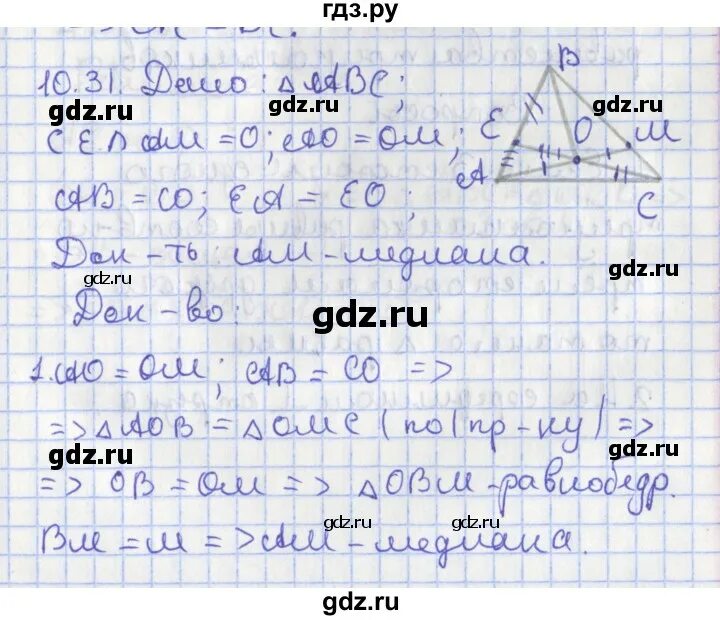 гдз.ру
10.31. Дано: △ABC;
CE ∩ AM = O; AO = OM;
AB = CO; EA = EO;
Док-ть: AM - медиана.
Док-во:
1. AO = OM; AB = CO =>
=> △AOB = △OMC (по I пр-ку) =>
=> OB = OM => △OBM - равнобедр.
BM = M => AM - медиана.
B
E
O
M
A
C
gdz.ru
gdz.ru
gdz.ru
gdz.ru
gdz.ru
gdz.ru
gdz.ru
gdz.ru
gdz.ru
gdz.ru
gdz.ru
gdz.ru